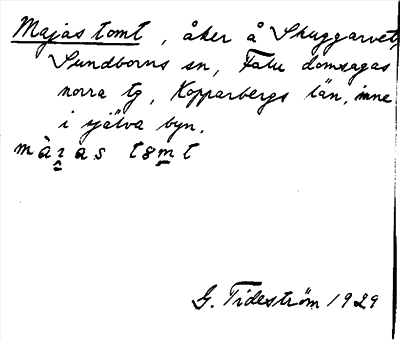 Majas tomt, åker å Skuggarvet,
Sundborns sn, Falu domsagas
norra tg, Kopparbergs län, inne
i själva byn.
G. Tideström 1929